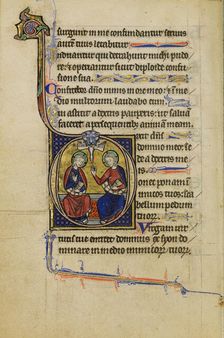 surgunt in me confundantur seruus
autem tuus letabitur
Induantur qui detrahunt michi pudo
re: & operiantur sicut diploide confusi
one sua.
Confitebor dño nimis in ore meo: & in me
dio multorum laudabo eum
astitit a dextris pauperis: ut salua
faceret a persequentibus animam meam
dño
domino meo: se
de a dextris me
is
onec ponam i
nimicos tuos: sca
bellum pedum
tuorum
Virgam uir
tutis tue emittet dominus ex syon: do
minare in medio inimicorum tuorum